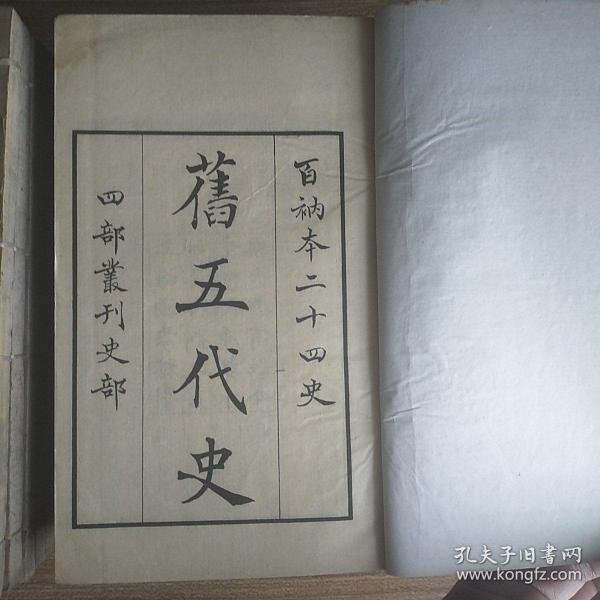 百衲本二十四史
舊五代史
四部叢刊史部
孔夫子旧书网
www.kongfz.com